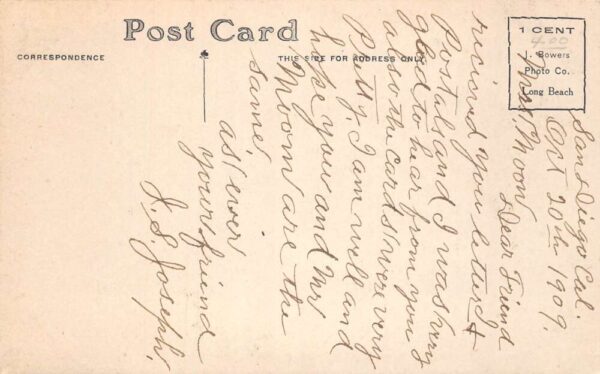 Post Card
CORRESPONDENCE
THIS SIDE FOR ADDRESS ONLY
1 CENT
4.00
J. Bowers
Photo Co.
Long Beach
San Diego Cal.
Oct 20th 1909.
Mrs. Moon Dear Friend
recieved you letter &
Postals and I was very
glad to hear from you
also the cards were very
Pretty. I am well and
hope you and Mr
Moon are the
same.
as ever
your friend
J. S. Joseph.